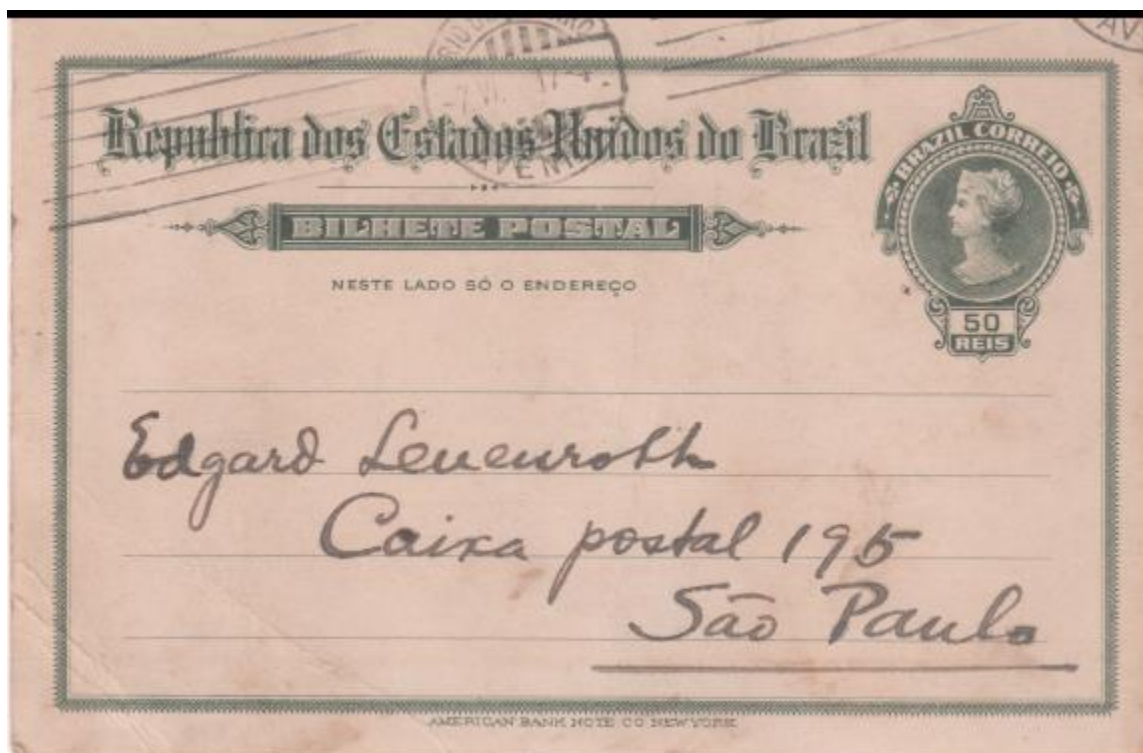 Republica dos Estados Unidos do Brazil
BILHETE POSTAL
NESTE LADO SÓ O ENDEREÇO
BRAZIL CORREIO
50
REIS
Edgard Leuenroth
Caixa postal 195
São Paulo
AMERICAN BANK NOTE CO NEW YORK